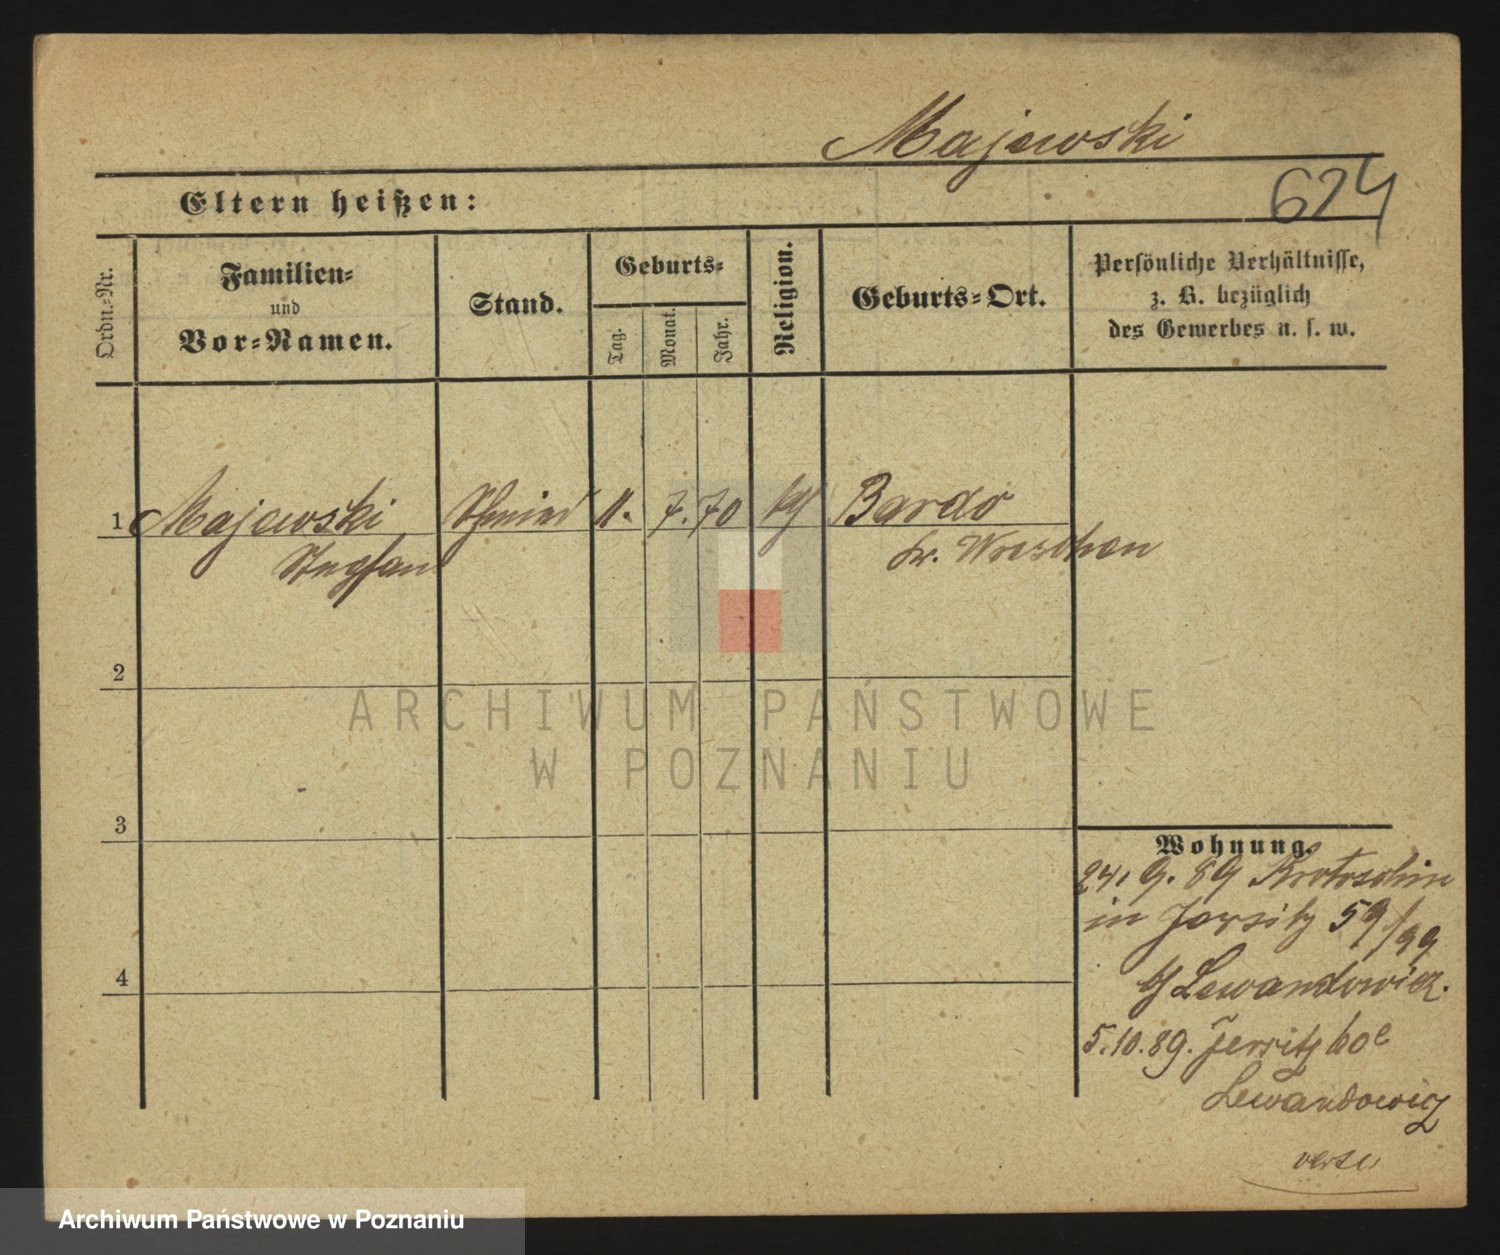 Majewski
624
Eltern heißen:
Ordn.-Nr.
Familien-
und
Vor-Namen.
Stand.
Geburts-
Tag.
Monat.
Jahr.
Religion.
Geburts-Ort.
Persönliche Verhältnisse,
z. B. bezüglich
des Gewerbes u. s. w.
1 Majewski Schmied 11. 7. 70 Bardo
Stephan Kr. Wreschen
2
3
4
Wohnung.
24. 9. 89 Krotoschin
in Jersitz 59/99
Lewandowicz.
5.10.89. Jersitz 60e
Lewandowicz
ARCHIWUM PAŃSTWOWE
W POZNANIU
Archiwum Państwowe w Poznaniu